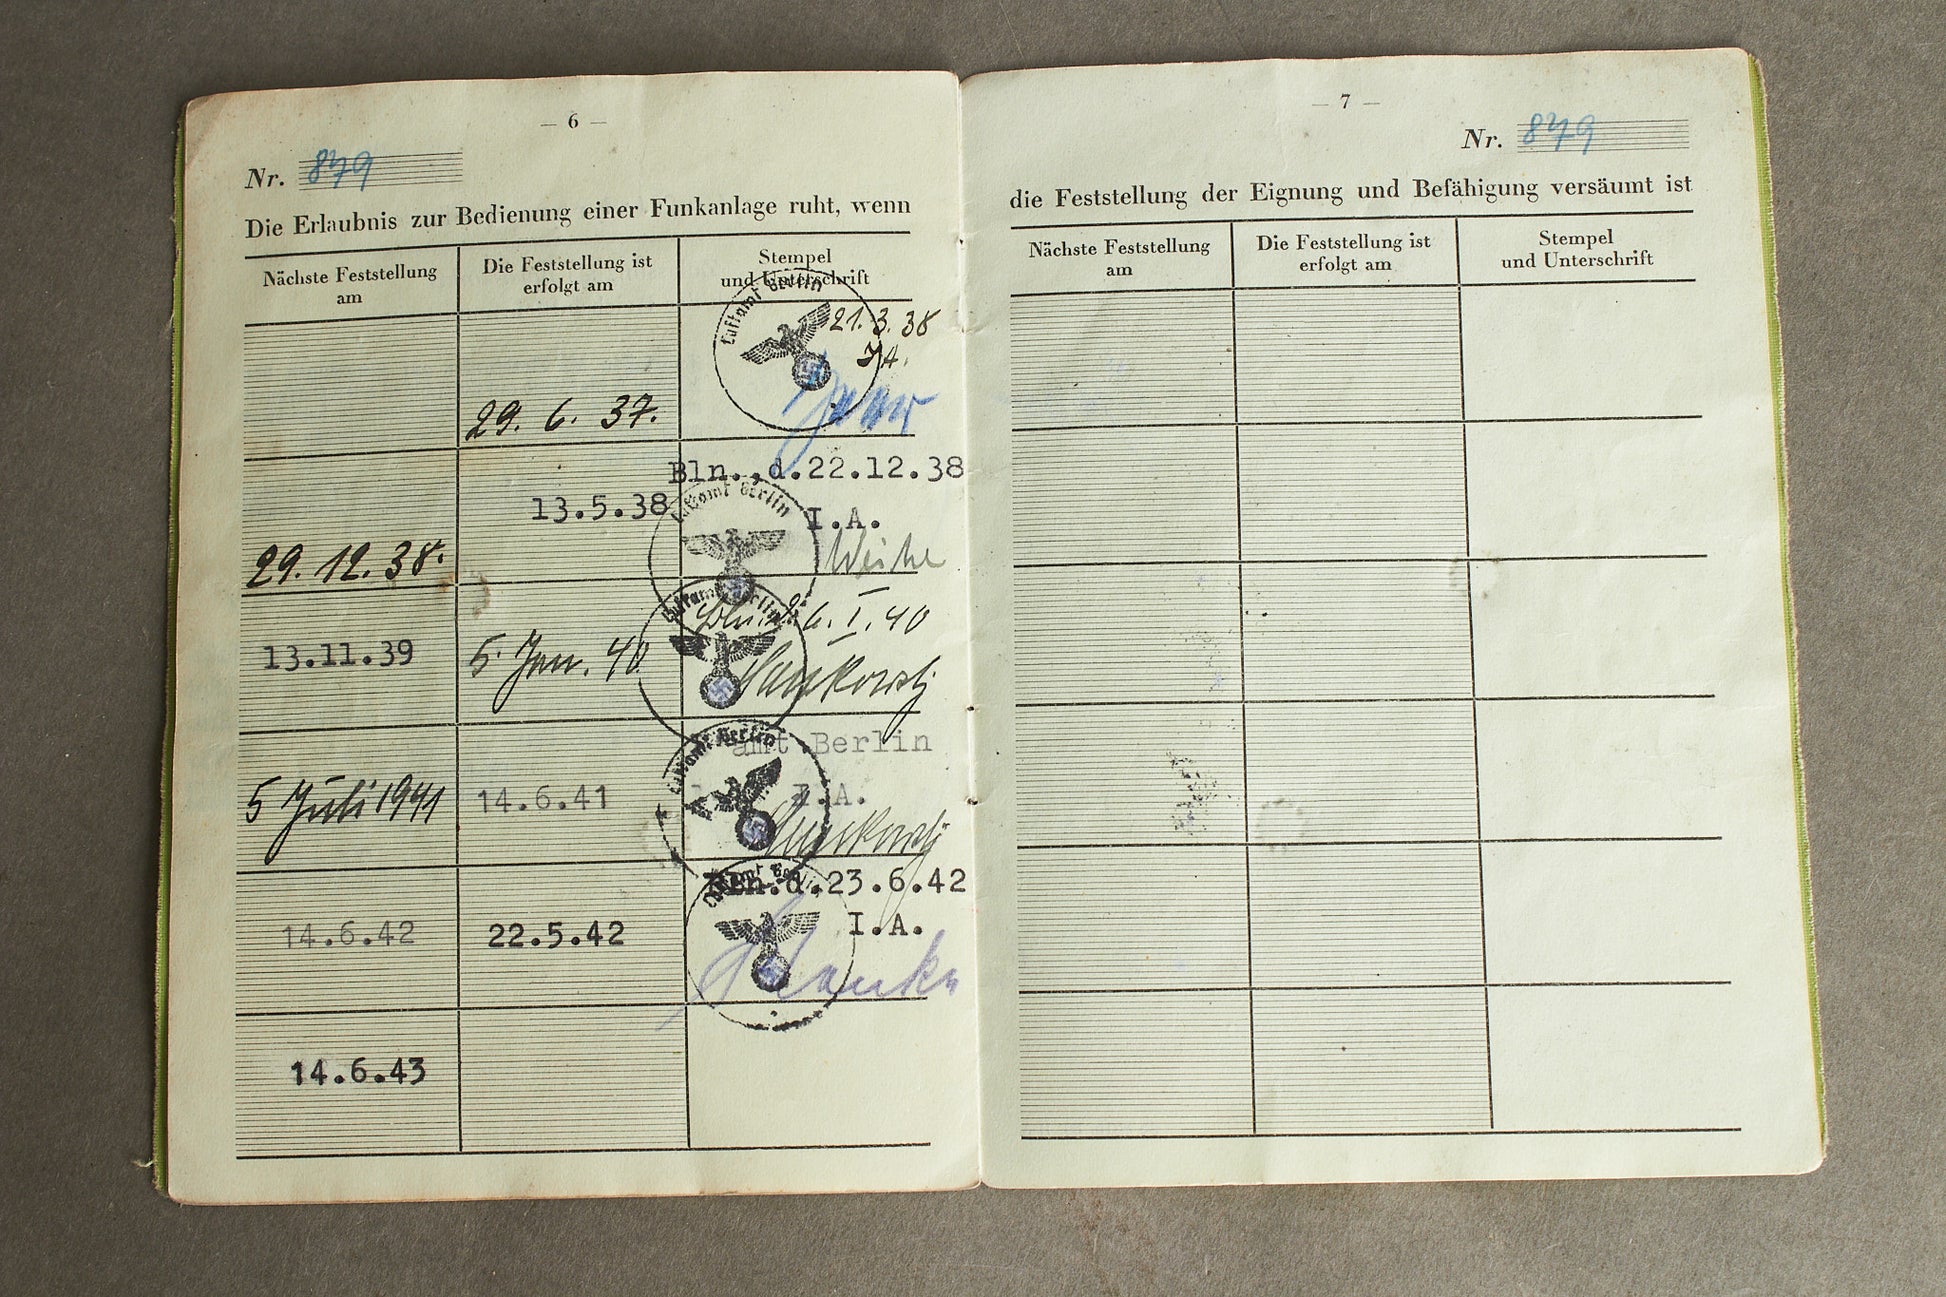 — 6 —
Nr. 879
Die Erlaubnis zur Bedienung einer Funkanlage ruht, wenn
Nächste Feststellung am
Die Feststellung ist erfolgt am
Stempel und Unterschrift
Luftamt Berlin
21.3.38
I.A.
29. 6. 37.
Bln.,d.22.12.38
13.5.38
Luftamt Berlin
I.A.
29. 12. 38.
Luftamt Berlin
26. I. 40
13.11.39
5. Jan. 40
amt Berlin
Luftamt Berlin
5 Juli 1941
14.6.41
I.A.
Bln.d.23.6.42
Luftamt Berlin
14.6.42
22.5.42
I.A.
14.6.43
— 7 —
Nr. 879
die Feststellung der Eignung und Befähigung versäumt ist
Nächste Feststellung am
Die Feststellung ist erfolgt am
Stempel und Unterschrift